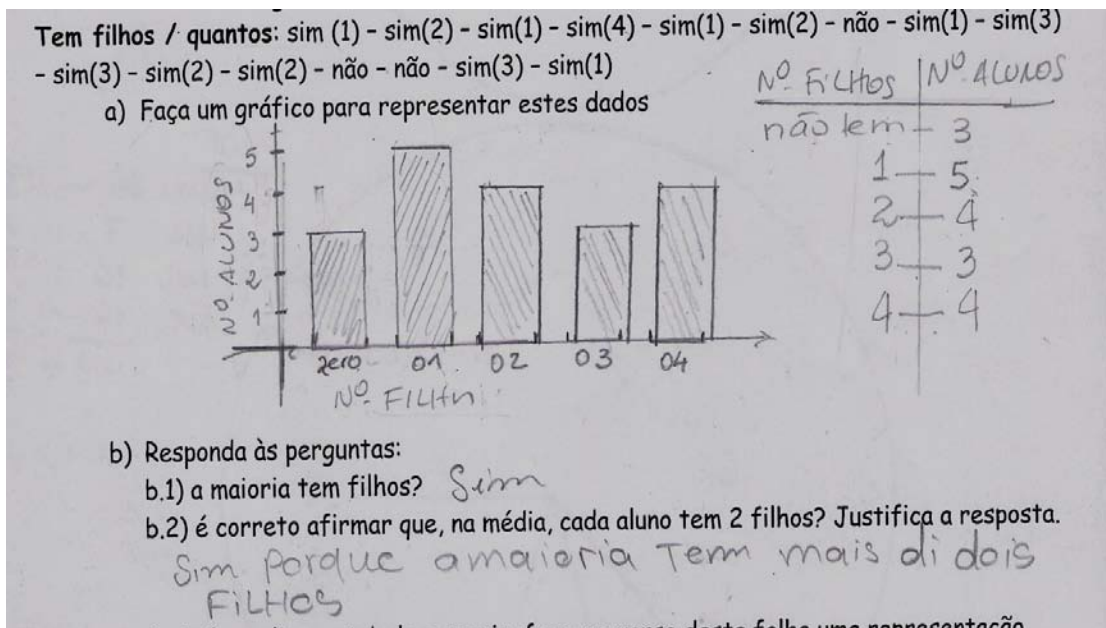 Tem filhos / quantos: sim (1) - sim(2) - sim(1) - sim(4) - sim(1) - sim(2) - não - sim(1) - sim(3)
- sim(3) - sim(2) - sim(2) - não - não - sim(3) - sim(1)
a) Faça um gráfico para representar estes dados
Nº FiLHos Nº ALUNOS
não tem - 3
1 — 5
2 — 4
3 — 3
4 — 4
Nº ALUNOS
5
4
3
2
1
zero 01 02 03 04
Nº FILH
b) Responda às perguntas:
b.1) a maioria tem filhos? Sim
b.2) é correto afirmar que, na média, cada aluno tem 2 filhos? Justifica a resposta.
Sim Porque amaioria Tem mais di dois
FiLHOS